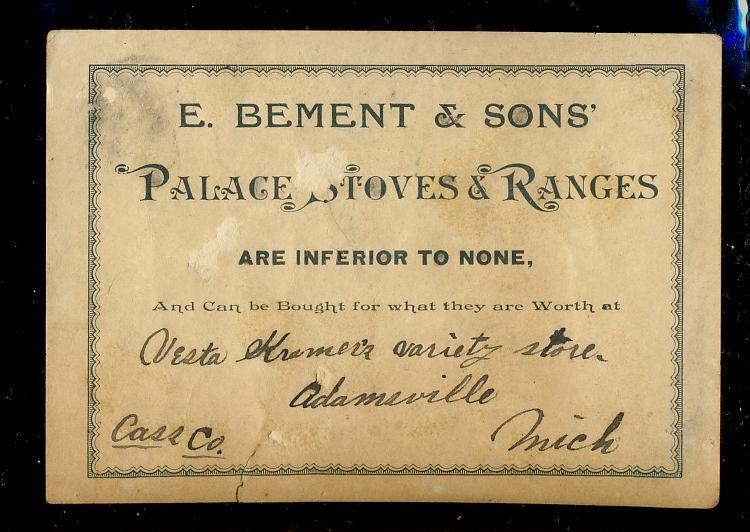 E. BEMENT & SONS'
PALACE STOVES & RANGES
ARE INFERIOR TO NONE,
And Can be Bought for what they are Worth at
Vesta Kramer's variety store.
Adamsville
Cass Co. Mich